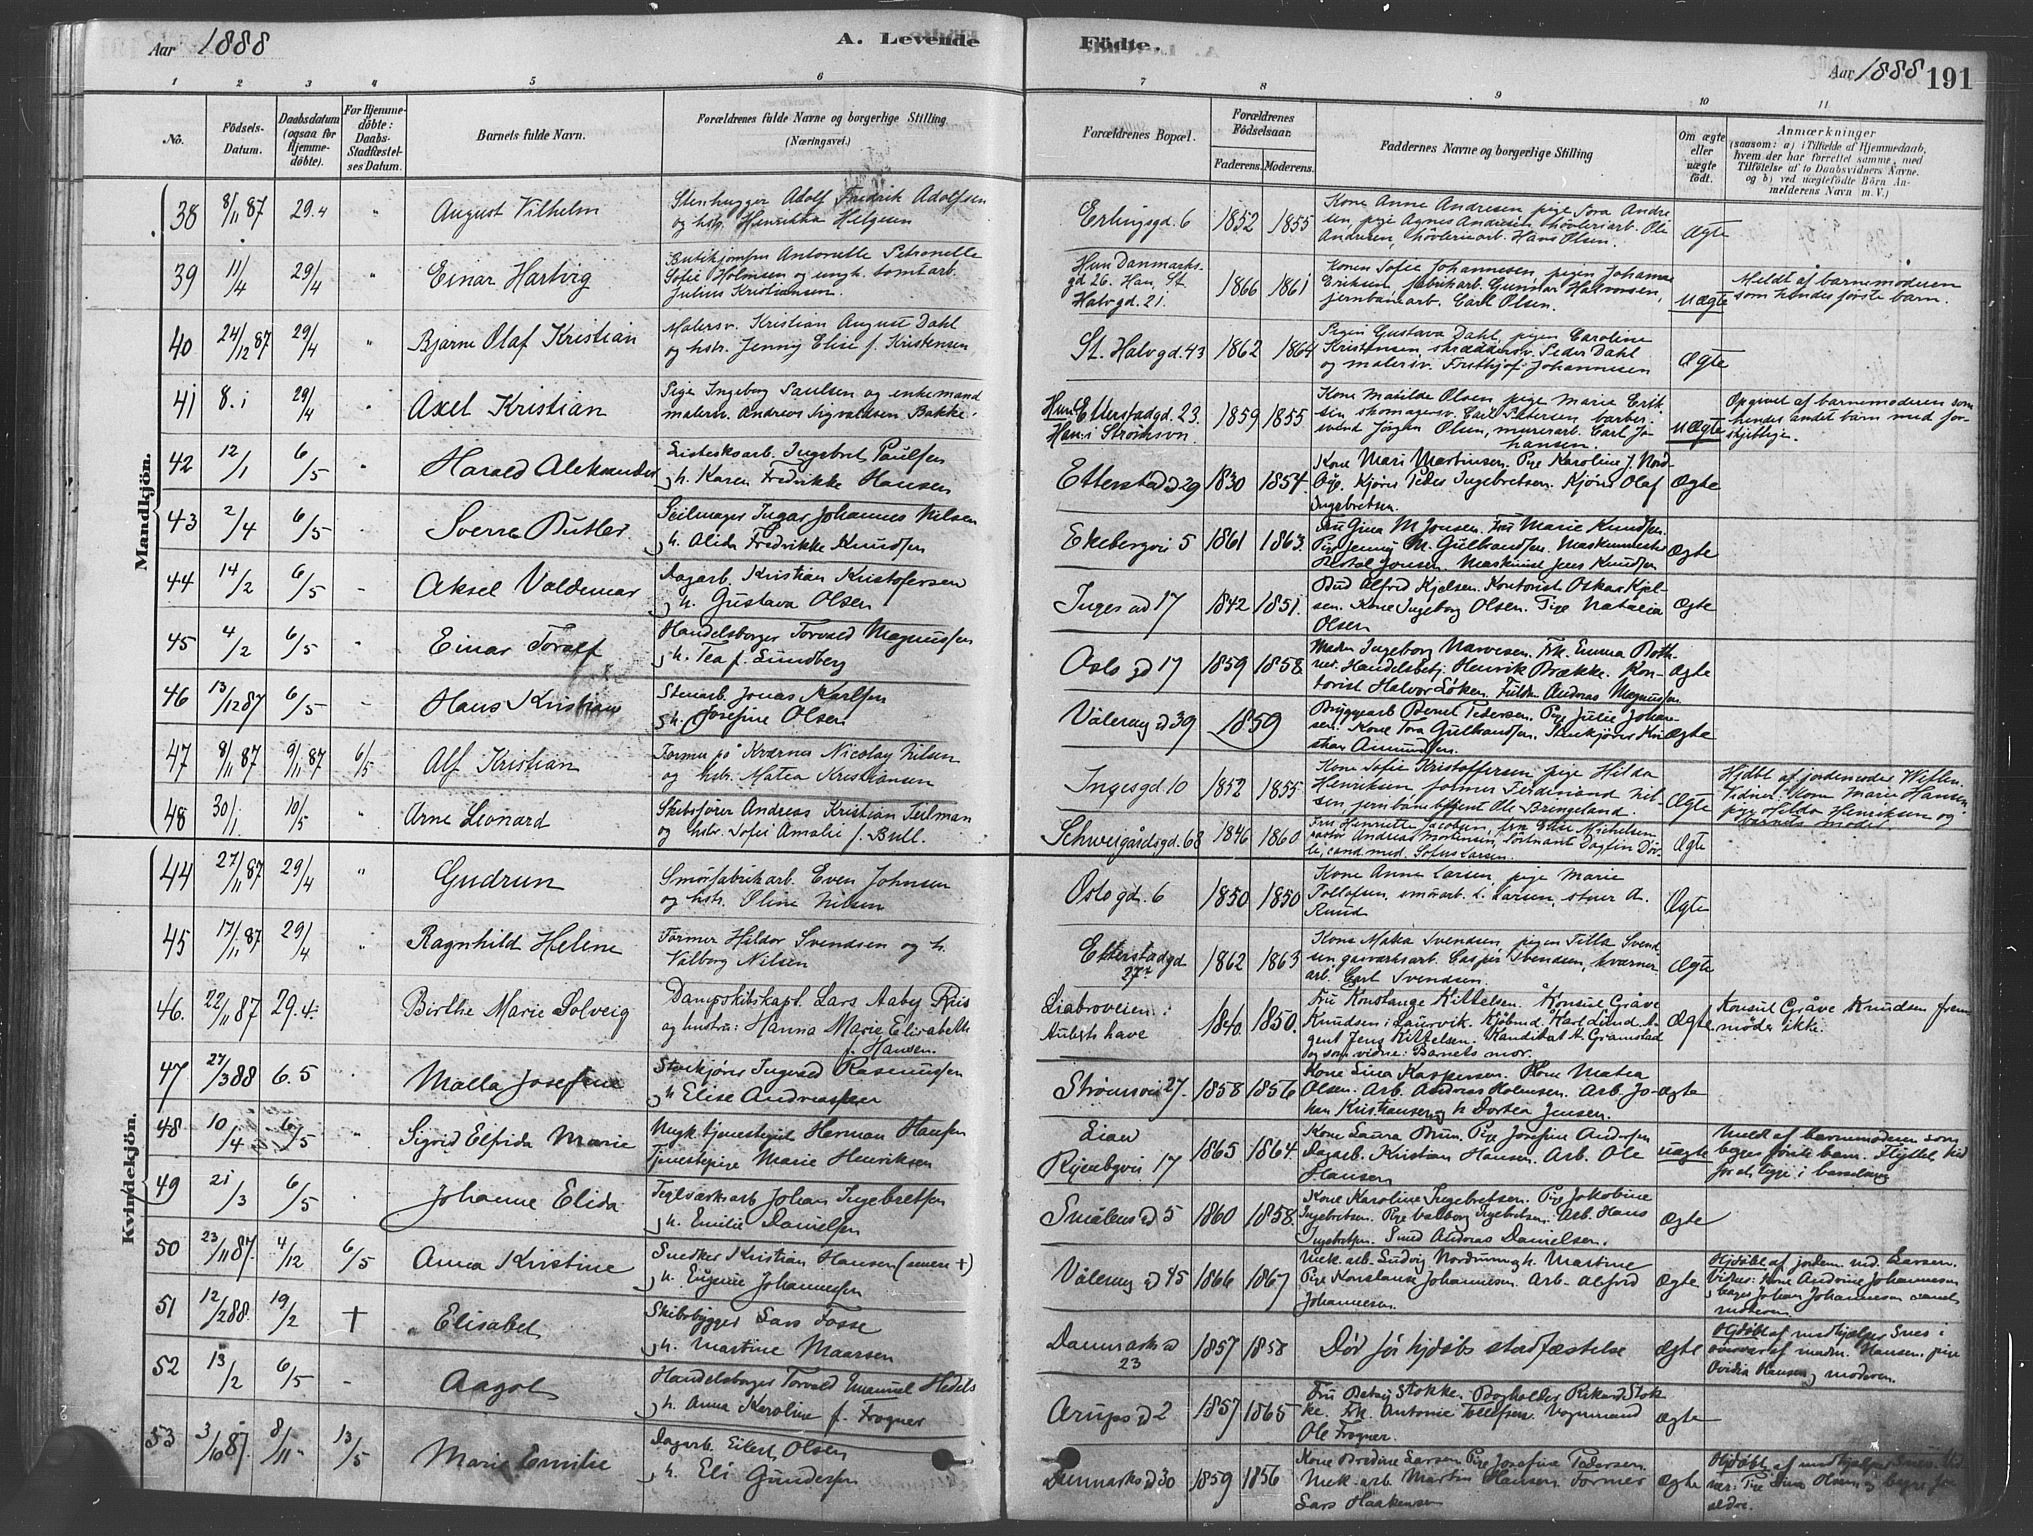 Aar 1888
A. Levende
Födte.
Aar 1888 191
1 2 3 4 5 6 7 8 9 10 11
No.
Födsels-
Datum.
Daabsdatum
(ogsaa for
Hjemme-
döbte).
For Hjemme-
döbte:
Daabs-
Stadfæstel-
ses Datum.
Barnets fulde Navn.
Forældrenes fulde Navne og borgerlige Stilling
(Næringsvei.)
Forældrenes Bopæl.
Forældrenes
Födselsaar.
Faderens. Moderens.
Faddernes Navne og borgerlige Stilling
Om ægte
eller
uægte
födt.
Anmærkninger
(saasom: a) i Tilfælde af Hjemmedaab,
hvem der har forrettet samme, med
Tilföielse af to Daabsvidners Navne,
og b) ved uægtefödte Börn An-
melderens Navn m. V.)
Mandkjön.
38 8/11 87 29.4 " August Vilhelm
Stenhugger Adolf Fredrik Adolfsen
og hstr. Henrikka Helgesen
Erlingsgd. 6 1852 1855
Kone Anne Andresen, pige Tora Andre
sen, pige Agnes Andresen, høvleriarb. Ole
Andresen, høvleriarb. Hans Olsen.
Ægte
39 11/4 29/4 " Einar Hartvig
Butikjomfru Antonette Petronelle
Sofie Holmsen og ungk. tomtarb.
Julius Kristiansen.
Hun Danmarks-
gd 26. Han, St.
Halvgd. 21.
1866 1861
Konen Sofie Johannesen, pigen Johanne
Eriksen, fabrikarb. Gunnar Halvorsen,
jernbanearb. Carl Olsen.
uægte
Meldt af barnemoderen
som hendes første barn.
40 24/12 87 29/4 " Bjarne Olaf Kristian
Malersv. Kristian August Dahl
og hstr. Jenny Elise f. Kristensen
St. Halvgd. 43 1862 1864
Pigen Gustava Dahl, pigen Caroline
Kristensen, skræddersv. Peder Dahl
og malersv. Frithjof Johannesen
Ægte
41 8.1 29/4 " Axel Kristian
Pige Ingeborg Paulsen og enkemand
malersv. Andreas Sigvaldsen Bakke.
Hun: Etterstadgd. 23.
Han: i Strømsvn.
1859 1855
Kone Matilde Olsen, pige Marie Erik-
sen, skomagersv. Carl Petersen, barber-
svend Jørgen Olsen, murerarb. Carl Jo-
hansen.
uægte
Opgivet af barnemoderen som
hendes andet barn med for-
skjellige.
42 12/1 6/5 " Harald Aleksander
Ingebret Paulsen
h. Karen Fredrikke Hansen
Etterstad gd 29 1830 1854.
Kone Mari Martinsen. Pige Karoline J. Nord-
Kjører Peder Ingebretsen. Kjører Olaf
Ingebretsen.
Ægte
43 2/4 6/5 Sverre Butler
Seilmager Ingar Johannes Nilsen
h. Alida Fredrikke Knudsen
Ekebergvei 5 1861 1863.
Fru Gina M. Jonsen. Fru Marie Knudsen.
Pige Jenny M. Gulbrandsen. Maskinmester
Jonsen. Maskinist Jens Knudsen
Ægte
44 14/2 6/5 - Aksel Valdemar
Dagarb. Kristian Kristofersen
h. Gustava Olsen
Inges gd 17 1842 1851.
Bud Alfred Kjelsen. Kontorist Oskar Kjel-
sen. Kone Ingeborg Olsen. Pige Natalia
Olsen
Ægte
45 4/2 6/5 Einar Toralf
Handelsborger Torvald Magnussen
h. Tea f. Lundberg
Oslo gd 17 1859 1858
Madm Ingeborg Narvesen. Frk. Emma Both-
ner. Handelsbetj. Henrik Brække. Kon-
torist Halvor Löken. Andreas Magnussen
Ægte
46 13/12 87 6/5 - Hans Kristian
Stenarb. Jonas Karlsen
h. Josefine Olsen
Våleng gd 39 1859
Bryggearb. Bernt Pedersen. Pige Julie Johan-
sen. Kone Tora Gulbrandsen. Stenkjører
Amundsen.
Ægte
47 8/11 87 9/11 87 6/5 Alf Kristian
Former på Kværner Nicolay Nilsen
og hstr. Matea Kristiansen
Ingesgd. 10 1852 1855
Kone Sofie Kristoffersen, pige Hilda
Henriksen, former Ferdinand Nil-
sen, jernbanebetjent Ole Bringeland.
Ægte
Hjdbt af jordemoder
Vidner: Kone Marie Hansen
pige Hilda Henriksen og
barnets moder.
48 30/1 10/5 " Arne Leonard
Skibsfører Andreas Kristian Teilman
og hstr. Sofie Amalie f. Bull.
Schweigårdsgd. 68 1846 1860
Fru Henriette Jacobsen, fru Elise Michelsen
Andreas Mortensen, løitnant Dagfin
cand. med. Sofus Larsen.
Ægte
Kvindekjön.
44 27/11 87 29/4 " Gudrun
Smørfabrikarb. Even Johnsen
og hstr. Oline Nilsen
Oslogd. 6 1850 1850
Kone Anne Larsen, pige Marie
Tollefsen, smørarb. L. Larsen, stuer A.
Ruud
Ægte
45 17/11 87 29/4 " Ragnhild Helene
Former Hildor Svendsen og h.
Valborg Nilsen
Etterstadgd
27
1862 1863
Kone Matea Svendsen, pigen Tilla Svend
sen, gasværksarb. Casper Svendsen, kværner
arb. Carl Svendsen.
Ægte
46. 22/11 87 29.4. Birthe Marie Solveig
Dampskibskapt. Lars Aaby Riis
og hustru: Hanna Marie Elisabeth
f. Hansen.
Liabroveien:
Auberts have
1840 1850.
Fru Konstanze Kittelsen. Konsul Gråve
Knudsen i Laurvik. Kjøbmd. Karl Lund. A-
gent Jens Kittelsen. Kandidat A. Gramstad
og som vidne: Barnets mor.
Ægte
Konsul Gråve Knudsen frem
møder ikke.
47 27/3 88 6.5 Malla Josefine
Ingvald Rasmussen
h Elise Andreassen
Strømsvei 27. 1858 1856
Kone Lina Kaspersen. Kone Matea
Olsen. Arb. Andreas Holmsen. Arb. Jo-
han Kristiansen, h. Dortea Jensen.
Ægte
48 10/4 6/5 " Sigrid Elfrida Marie
Ungk. Herman Hansen
Tjenestepige Marie Henriksen
Lian
Ryenbgvei 17
1865 1864
Kone Laura Brun. Pige Josefine Andersen
Dagarb. Kristian Hansen. Arb. Ole
Hansen
uægte
Meldt af barnemoderen som
begges første barn. Flyttet hid
for at ligge i barselseng
49 21/3 6/5 Johanne Elida
Teglværksarb Johan Ingebretsen
h. Emilie Danielsen
Smålens gd 5 1860 1858.
Kone Karoline Ingebretsen. Pige Jakobine
Ingebretsen. Pige Valborg Ingebretsen. Arb. Hans
Ingebretsen. Smed Andreas Danielsen.
Ægte
50 23/11 87. 4/12 6/5 Anna Kristine
Snedker Kristian Hansen (senere +)
h. Eugenie Johannessen
Våleng gd 45 1866 1867
Mek. arb. Ludvig Nordrum, h. Martine
Pige Konstanse Johannesen. Arb. Alfred
Johannesen.
Ægte
Hjdøbt af jordem. Larsen.
Vidner: Kone Andrine Johannesen
Johan Johannesen samt
moderen.
51 12/2 88. 19/2 + Elisabet
Skibsbygger Lars Fosse
h. Martine Maarsen
Danmarks gd
23
1857 1858 Død før hjdøbs stadfæstelse Ægte
Hjdøbt af medhjælper Snes i
overvær af madm. Hansen, pige
Ovidia Hansen, moderen.
52 13/2 6/5 - Aagot
Handelsborger Torvald Emanuel Hedels
h. Anna Karoline f. Frogner
Arups gd 2 1857 1865
Fru Betzy Stokke. Bogholder Rikard Stok
ke. Frk. Antonie Tollefsen. Vognmand
Ole Frogner.
Ægte
53 3/10 87. 8/11 13/5 Marie Emilie
Dagarb. Eilert Olsen
h. Eli Gundersen
Danmarks gd 30 1859 1856
Kone Bredine Larsen Pige Josefine Pedersen
Mek. arb. Martin Hansen Former
Lars Haakensen
Ægte
Hjdøbt af medhjælper Snes. Vid
ner: Pige Olsen, begge for
ældre.